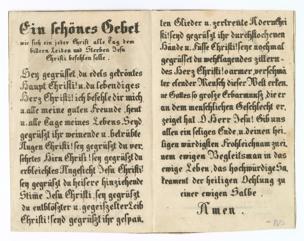 Ein schönes Gebet
wie sich ein jeder Christ alle Tag dem
bittern Leiden und Sterben Jesu
Christi befehlen solle.
Sey gegrüßet du edels gekröntes
Haupt Christi! u. du lebendiges
Herz Christi! ich befehle dir mich
u. alle meine guten Freunde, heut
u. alle Tage meines Lebens. Seyd
gegrüßt ihr weinende u. betrübte
Augen Christi! sey gegrüßt du ver¬
Christi! sey gegrüßt du
erbleichtes Angesicht Jesu Christi!
sey gegrüßt du heisere hinziehende
Stime Jesu Christi, sey gegrüßt
du entblößter u. gegeißelter Leib
Christi! seyd gegrüßt ihr gespan¬
ten Glieder u. zertrente Christi
seyd gegrüßt ihr durchstochenen
Hände u. Füsse Christi! seye nochmal
gegrüßt du wehklagendes
des Herz Christi! o armer
elender Mensch dieser Welt
an Gottes so große Erbarmnuß, die er
an dem menschlichen Geschlecht er¬
zeiget hat. O Herr Jesu! Gib uns
allen ein seliges Ende, u. deinen hei¬
ligen würdigsten Frohleichnam zu
nem ewigen Begleitsman in das
ewige Leben, das hochwürdige Sa¬
krament der heiligen Oehlung zu
einer ewigen Salbe.
Amen.